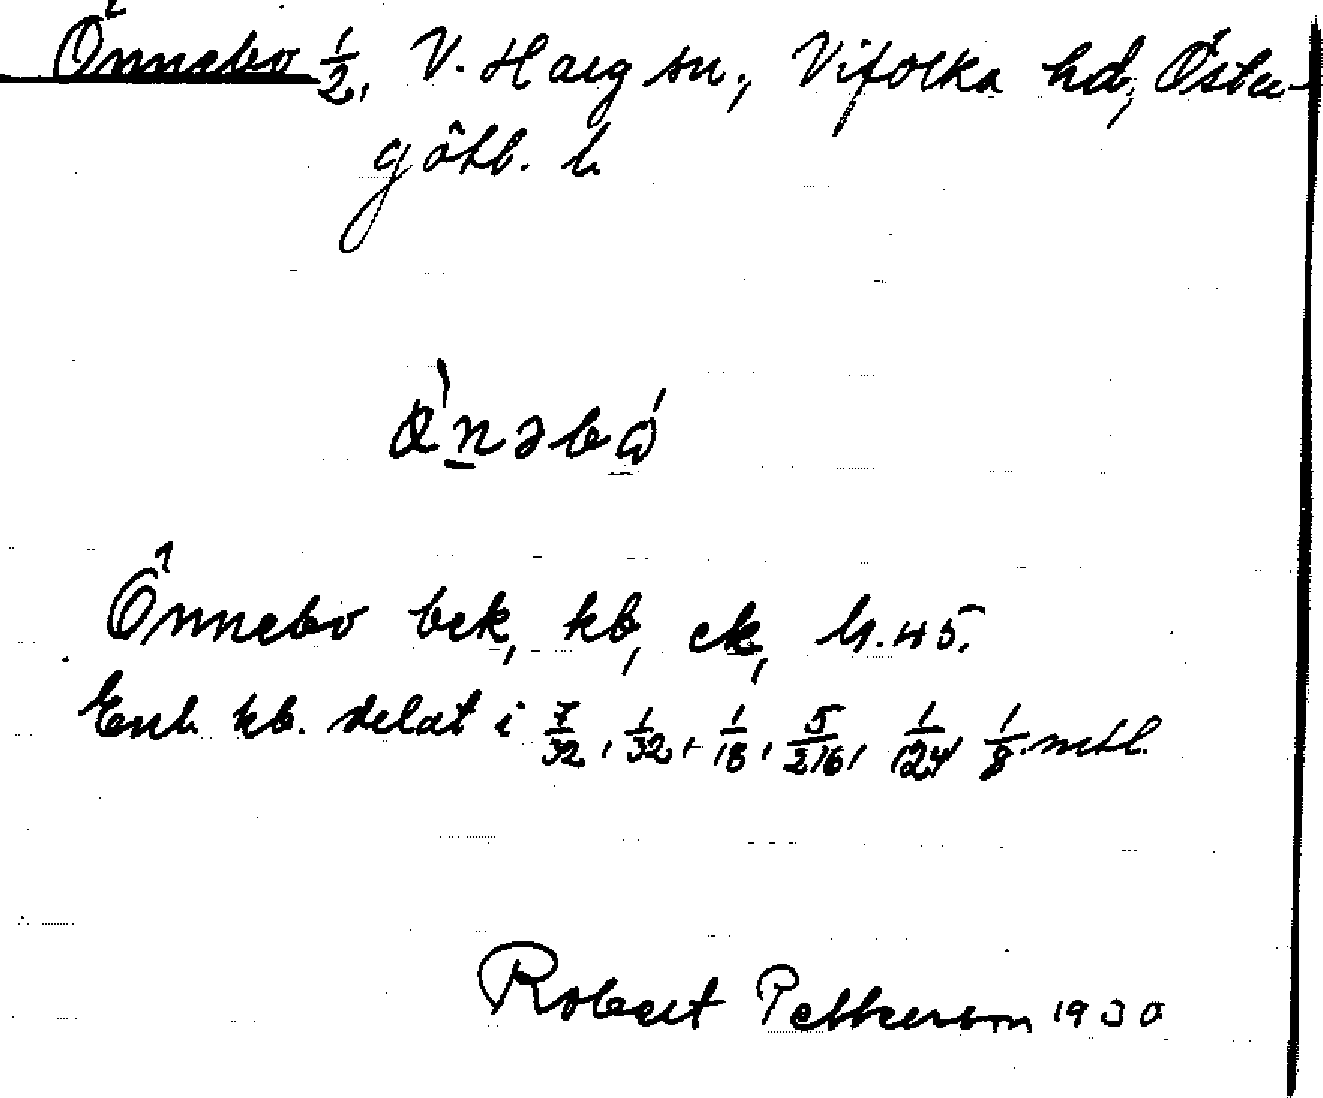 Önnebo 1/2, V. Harg sn., Vifolka hd, Öster-
götl. l.
Önnebo bek, kb, ek, M. 45.
Enl. kb. delat i 7/32, 1/32, 1/18, 5/216, 1/24, 1/8 mtl.
Robert Pettersson 1930